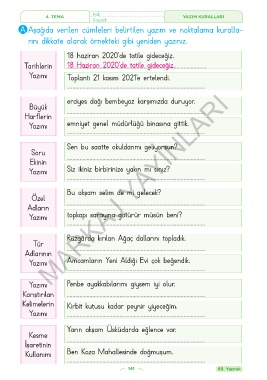 4. TEMA
YAZIM KURALLARI
A Aşağıda verilen cümleleri belirtilen yazım ve noktalama kuralla-
rını dikkate alarak örnekteki gibi yeniden yazınız.
Tarihlerin
Yazımı
18 haziran 2020'de tatile gideceğiz.
18 Haziran 2020'de tatile gideceğiz.
Toplantı 21 kasım 2021'e ertelendi.
Büyük
Harflerin
Yazımı
erciyes dağı bembeyaz karşımızda duruyor.
emniyet genel müdürlüğü binasına gittik.
Soru
Ekinin
Yazımı
Sen bu saatte okuldanmı geliyorsun?
Siz ikiniz birbirinize yakın mı sınız?
Özel
Adların
Yazımı
Bu akşam selim de mi gelecek?
topkapı sarayına götürür müsün beni?
Tür
Adlarının
Yazımı
Rüzgârda kırılan Ağaç dallarını topladık.
Amcamların Yeni Aldığı Evi çok beğendik.
Yazımı
Karıştırılan
Kelimelerin
Yazımı
Penbe ayakkabılarımı giysem iyi olur.
Kirbit kutusu kadar peynir yiyeceğim.
Kesme
İşaretinin
Kullanımı
Yarın akşam Üsküdarda eğlence var.
Ben Koza Mahallesinde doğmuşum.
MARKAJ YAYINLARI